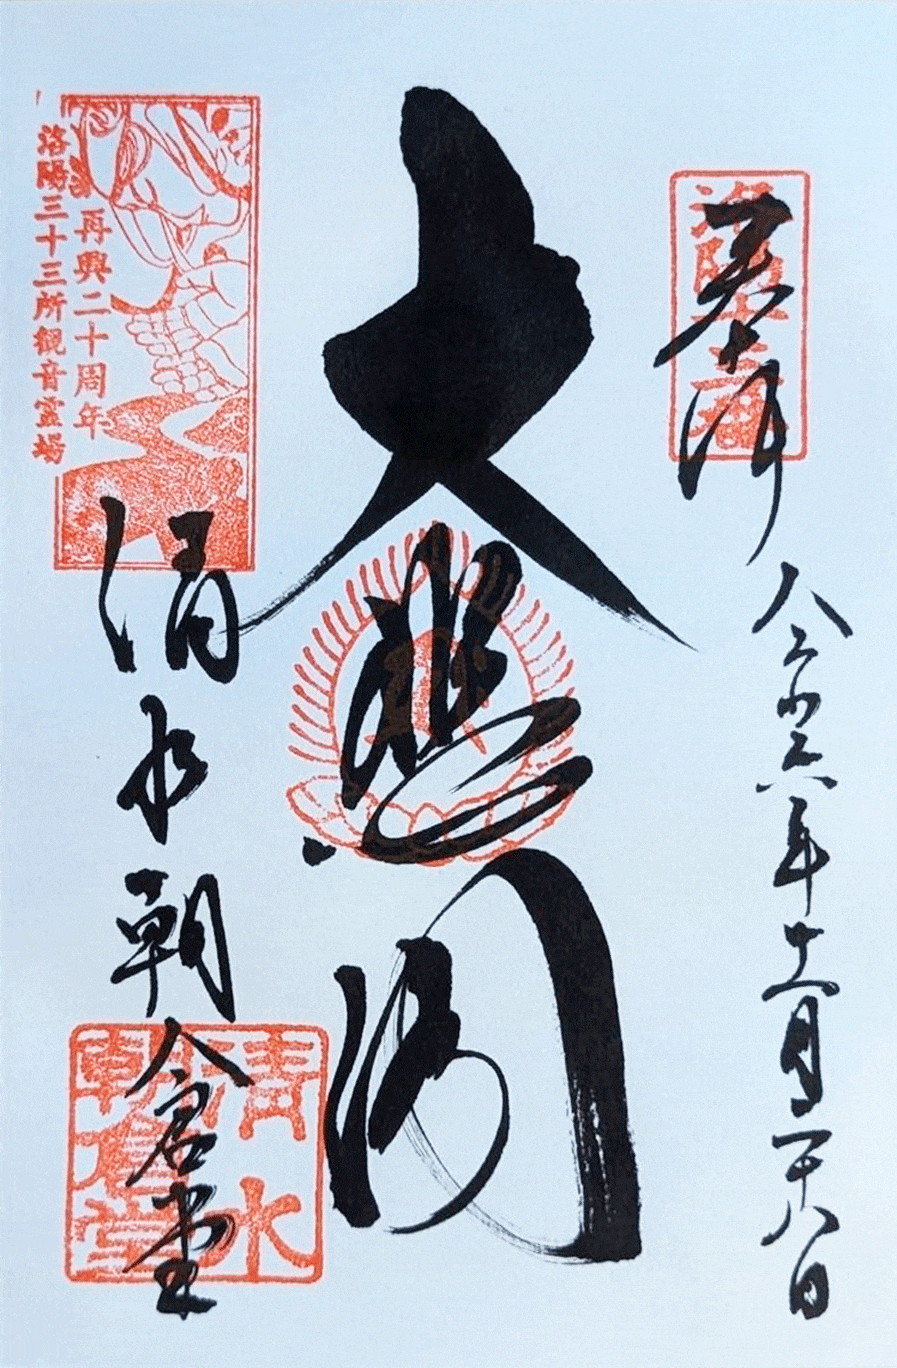 奉拝
洛陽十三番
令和六年十一月二十八日
大悲閣
再興二十周年
洛陽三十三所観音霊場
清水朝倉堂
清水
朝倉堂